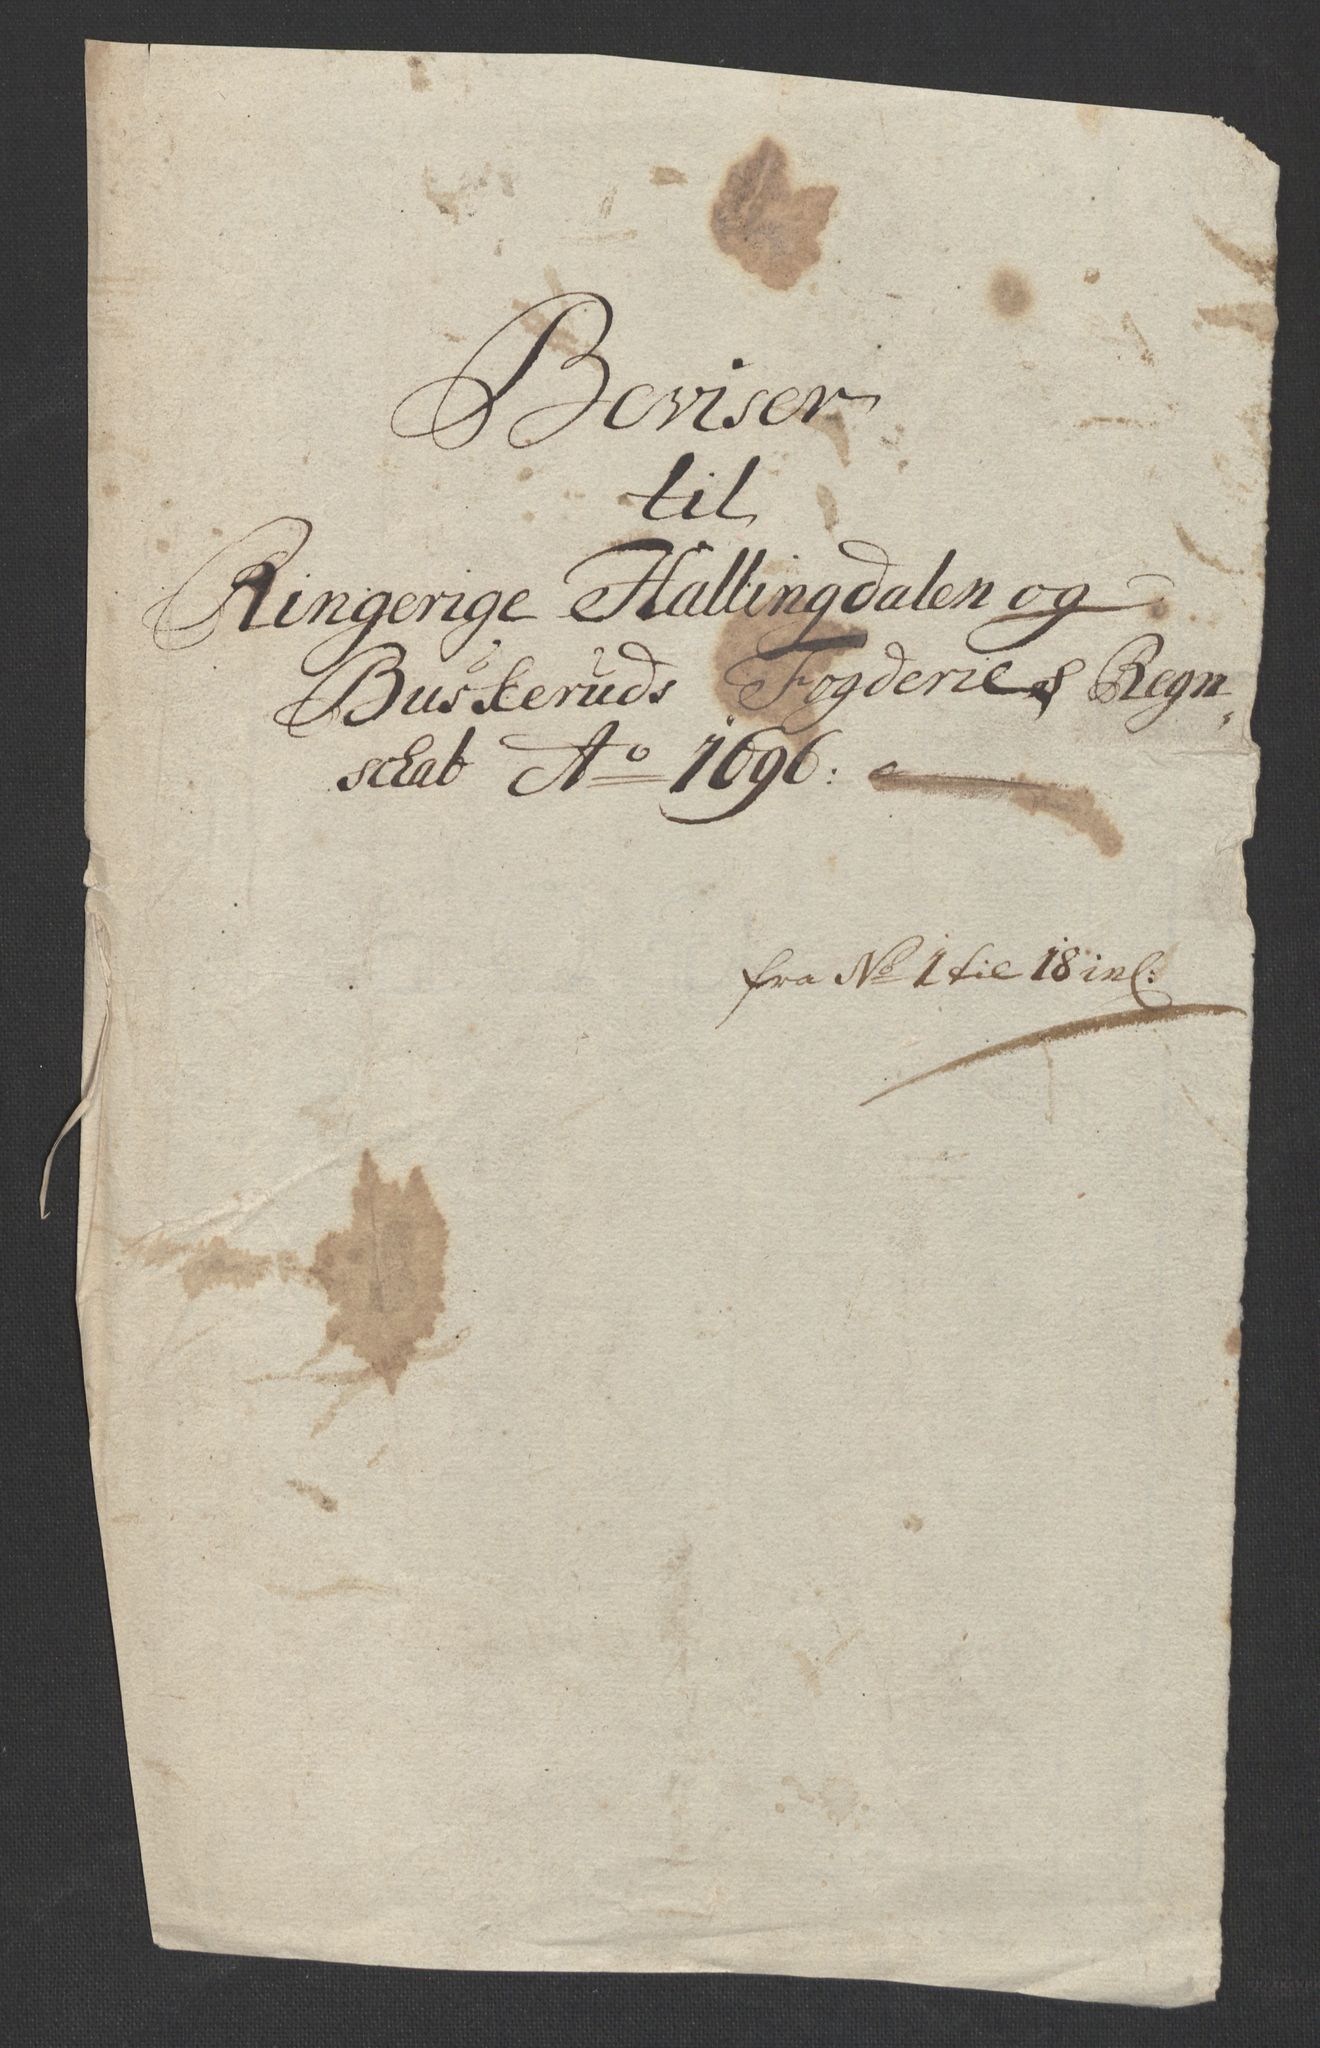 Beviser
til
Ringerige Hallingdalen og
Buskeruds Fogderies Regn-
schab Ao 1696:
fra No 1 til 18 incl: